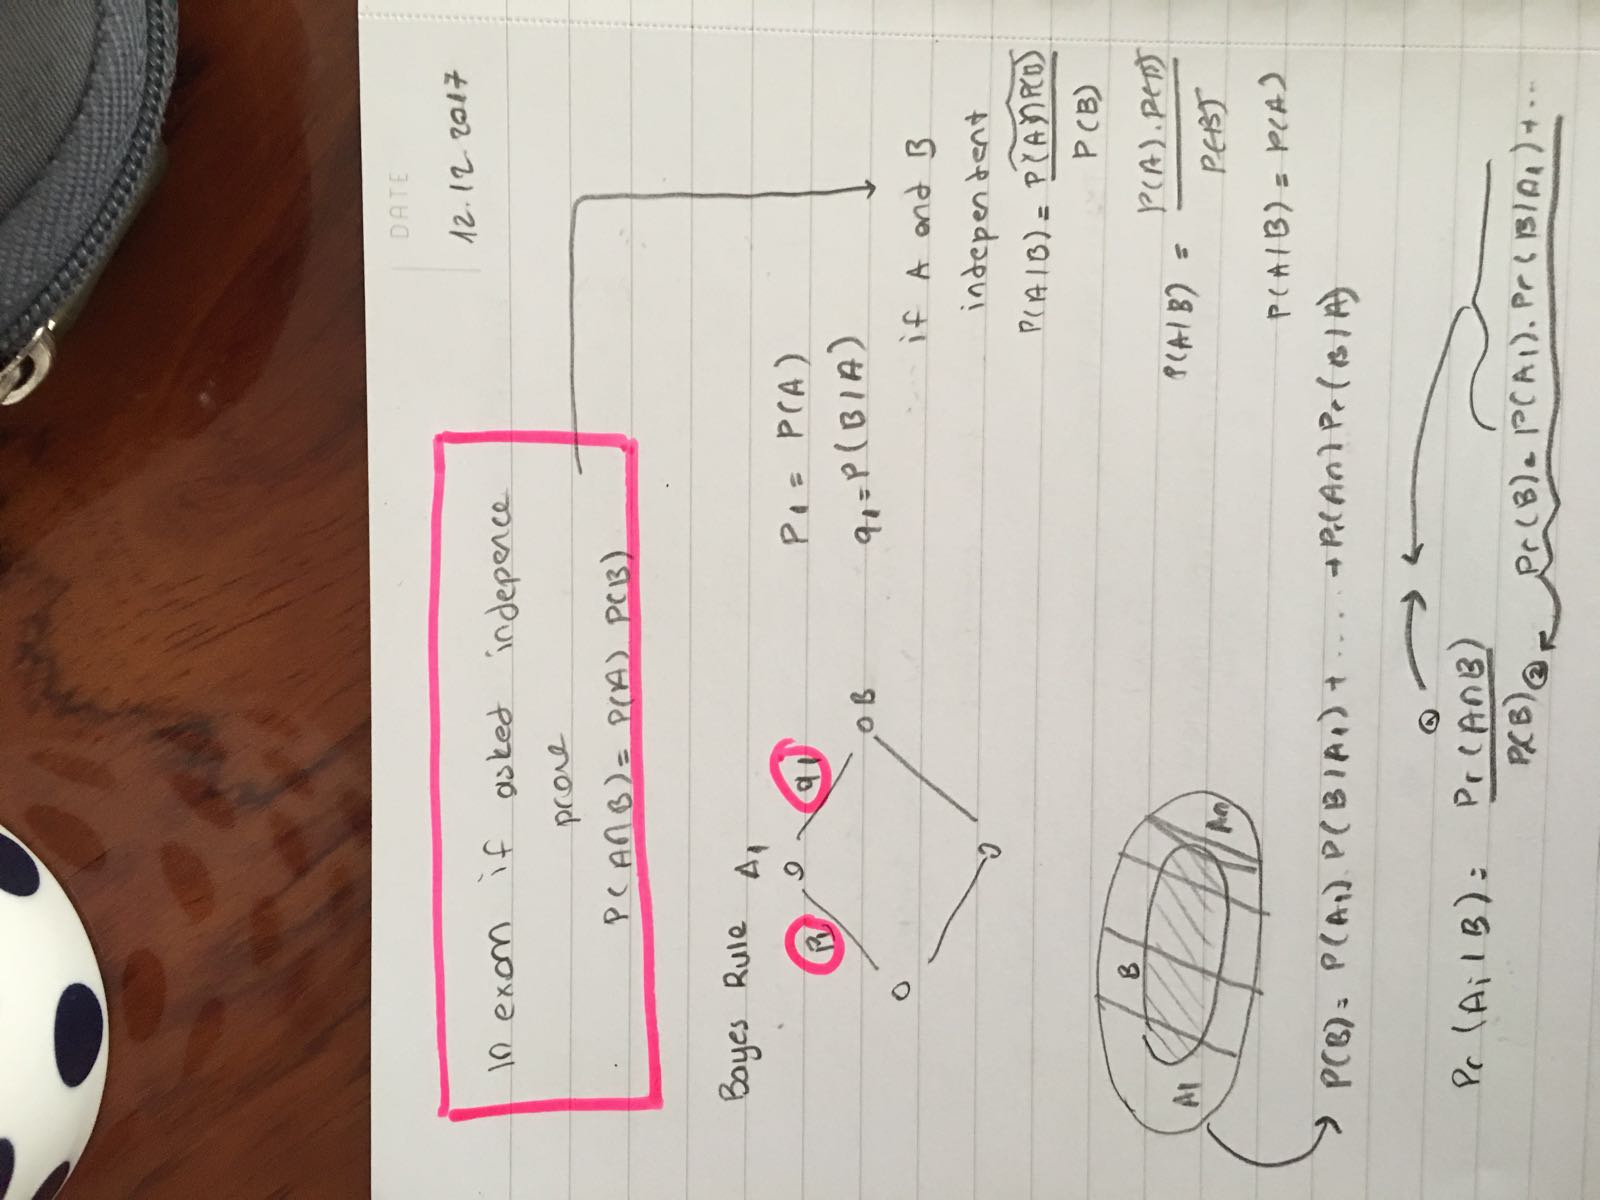 DATE
12.12.2017
In exam if asked indepence
prove
P(A∩B) = P(A) P(B)
Bayes Rule
A1
P1
q1
B
P1 = P(A)
q1 = P(B|A)
if A and B
independent
P(A|B) = P(A)∩P(B)
P(B)
P(A|B) = P(A).P(B)
P(B)
P(A|B) = P(A)
B
A1
An
P(B) = P(A1).P(B|A1) + ..... + Pr(An) Pr(B|A)
①
Pr(Ai|B) = Pr(A∩B)
P(B) ②
Pr(B) = P(A1).Pr(B|A1) + ...